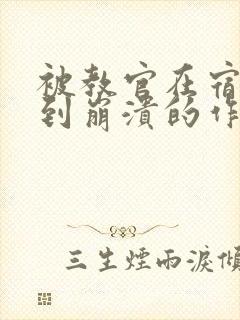 被教官在宿
到崩溃的作
三生煙雨淚傾